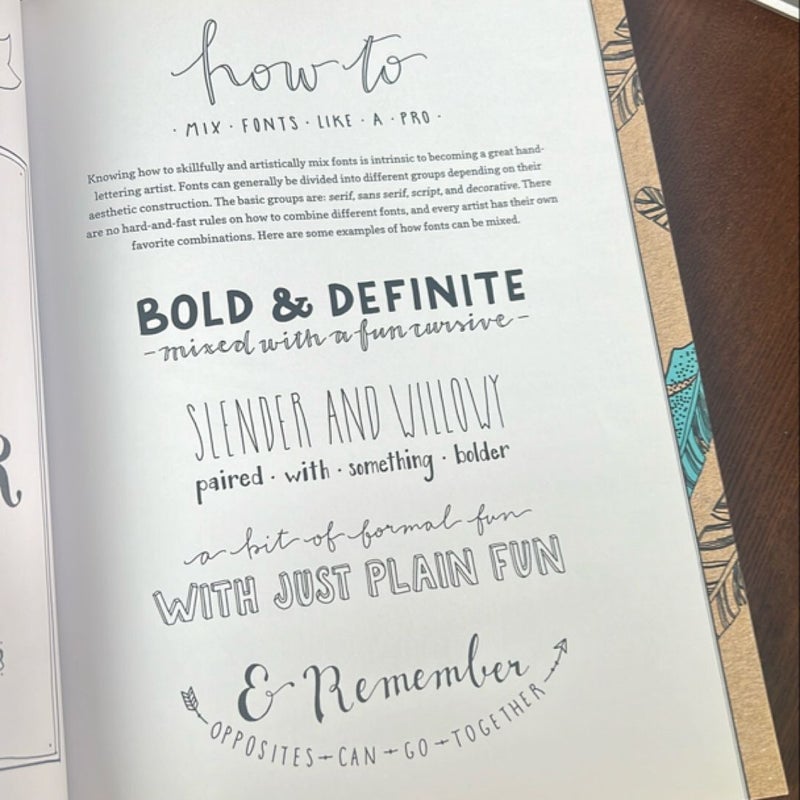 how to
· MIX · FONTS · LIKE · A · PRO ·
Knowing how to skillfully and artistically mix fonts is intrinsic to becoming a great hand-
lettering artist. Fonts can generally be divided into different groups depending on their
aesthetic construction. The basic groups are: serif, sans serif, script, and decorative. There
are no hard-and-fast rules on how to combine different fonts, and every artist has their own
favorite combinations. Here are some examples of how fonts can be mixed.
BOLD & DEFINITE
- mixed with a fun cursive -
SLENDER AND WILLOWY
paired · with · something · bolder
a bit of formal fun
WITH JUST PLAIN FUN
& Remember
OPPOSITES → CAN → GO → TOGETHER
R